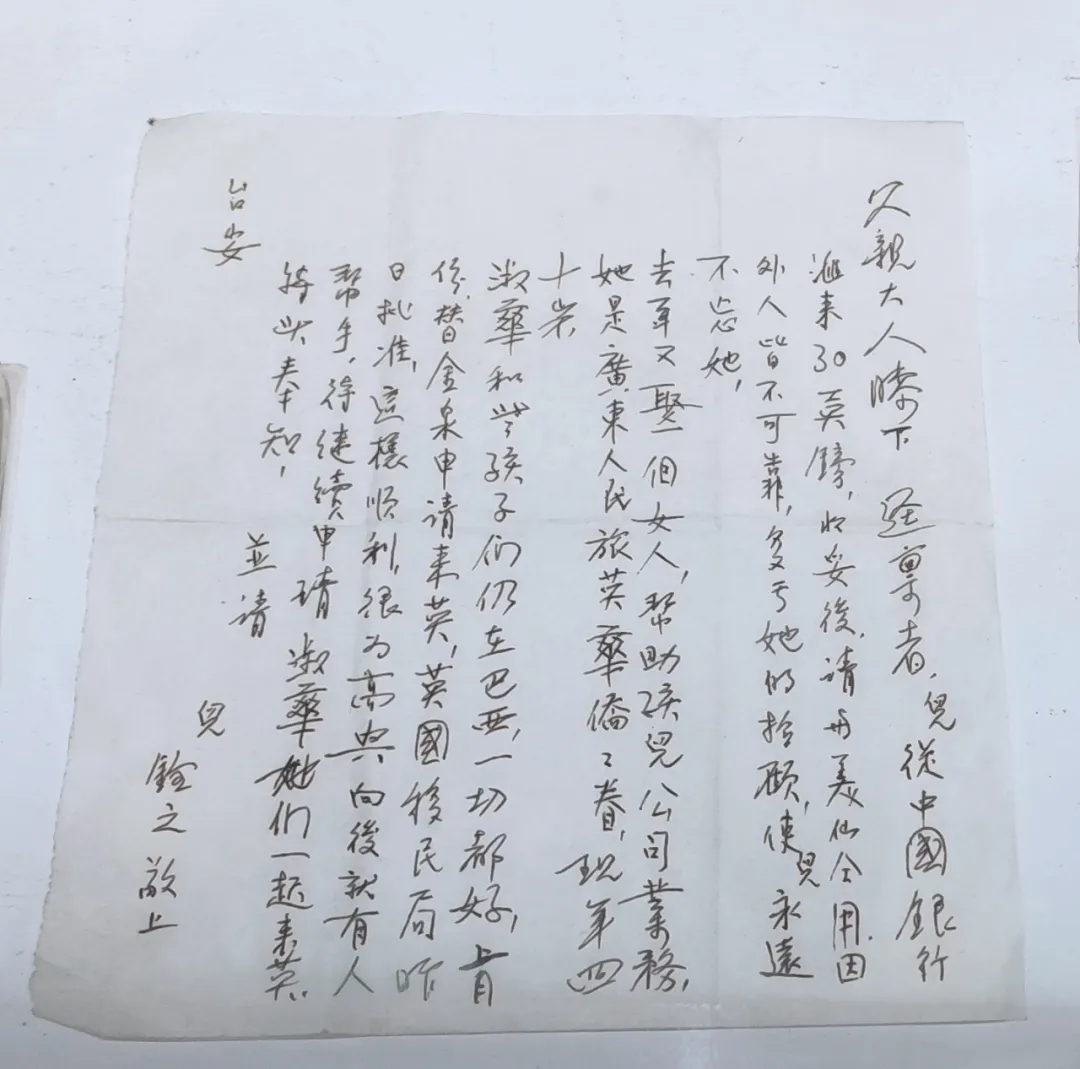 父親大人膝下 逕稟者，兒從中國銀行
滙来30英鎊，收妥後，請与美仙全用，因
外人皆不可靠，多亏她的捡顾，使兒永遠
不忘她，
去年又娶一個女人，帮助孩兒公司業務，
她是廣東人民旅英華僑之眷，現年四
十岁，
淑華和孩子们仍在巴西，一切都好，
替金泉申请来英，英國移民局昨
日批准，這樣順利，很为高兴向後就有人
帮手，待继續申請淑華她们一起来英，
特此奉知，
並请
台安
兒
銓之敬上